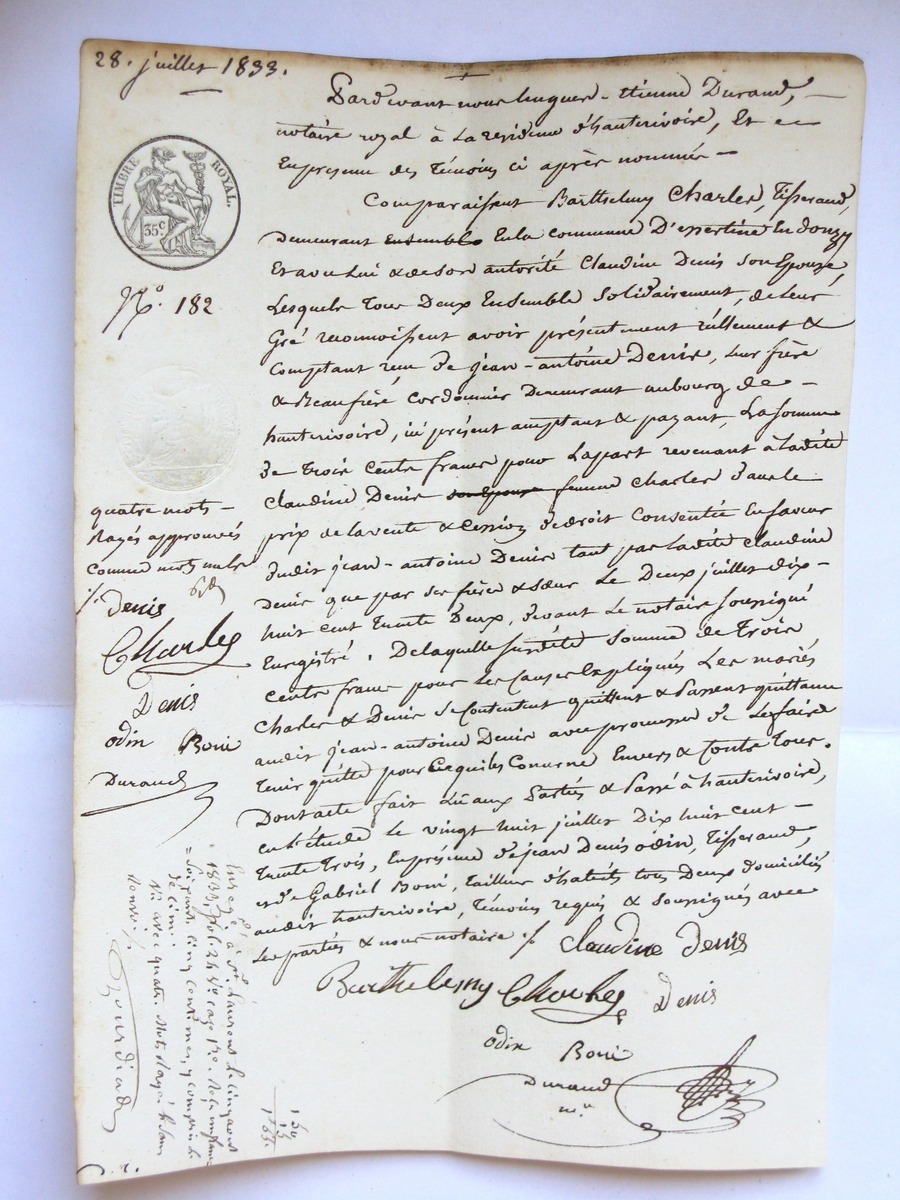 28. juillet 1833.
TIMBRE ROYAL.
35c
No. 182
Pardevant nous hugues-étienne Durand,
notaire royal à la residence d'hauterivoire, Et en
En presence des témoins ci après nommés
Comparaissent Barthelemy Charles, tisserand,
demeurant Ensemble En la commune D'essertine En donzy
Et avec Lui & de son autorité Claudine Denis son Epouse,
Lesquels tous Deux Ensemble Solidairement, de Leur
Gré reconnoissent avoir présentement réellement &
Comptant recu de jean-antoine Denis, leur frère
& Beaufrère cordonnier Demeurant au bourg de
hauterivoire, ici présent acceptant & payant, La somme
de trois cents francs pour La part revenant à Ladite
Claudine Denis son Epouse femme Charles dans le
prix de la vente & Cession de droit Consentie En faveur
dudit jean-antoine Denis tant par Ladite Claudine
Denis que par ses frère & sœur Le Deux juillet dix-
huit cent trente Deux, devant Le notaire soussigné
Enregistré. De laquelle susdite somme de trois
Cents francs pour Les Causes Expliqués Les mariés
Charles & Denis se Contentent quittent & Passent quittance
audit jean-antoine Denis avec promesse de Le faire
tenir quitte pour Ce qui les Concerne Envers & Contre tous.
Dont acte fait Lu aux Parties & Passé à hauterivoire,
En L'étude Le vingt huit juillet Dix huit cent
trente trois, En présence de jean Denis odin, tisserand,
& de Gabriel Boni, tailleur d'habits tous Deux domiciliés
audit hauterivoire, témoins requis & soussignés avec
Les parties & nous notaire ./.
Claudine Denis
Barthelemy Charles Denis
odin Boni
Durand
nre
quatre mots
Rayés approuvés
comme mots nuls
./.
Denis
Charles
Denis
odin Boni
Durand
Enregé à St. Laurent le cinq août
1833, fol. 24 Vo case
Soixante cinq centimes, y compris le
décime
Vu avec quatre mots rayés
Bourdiad
1 50
15
1 65